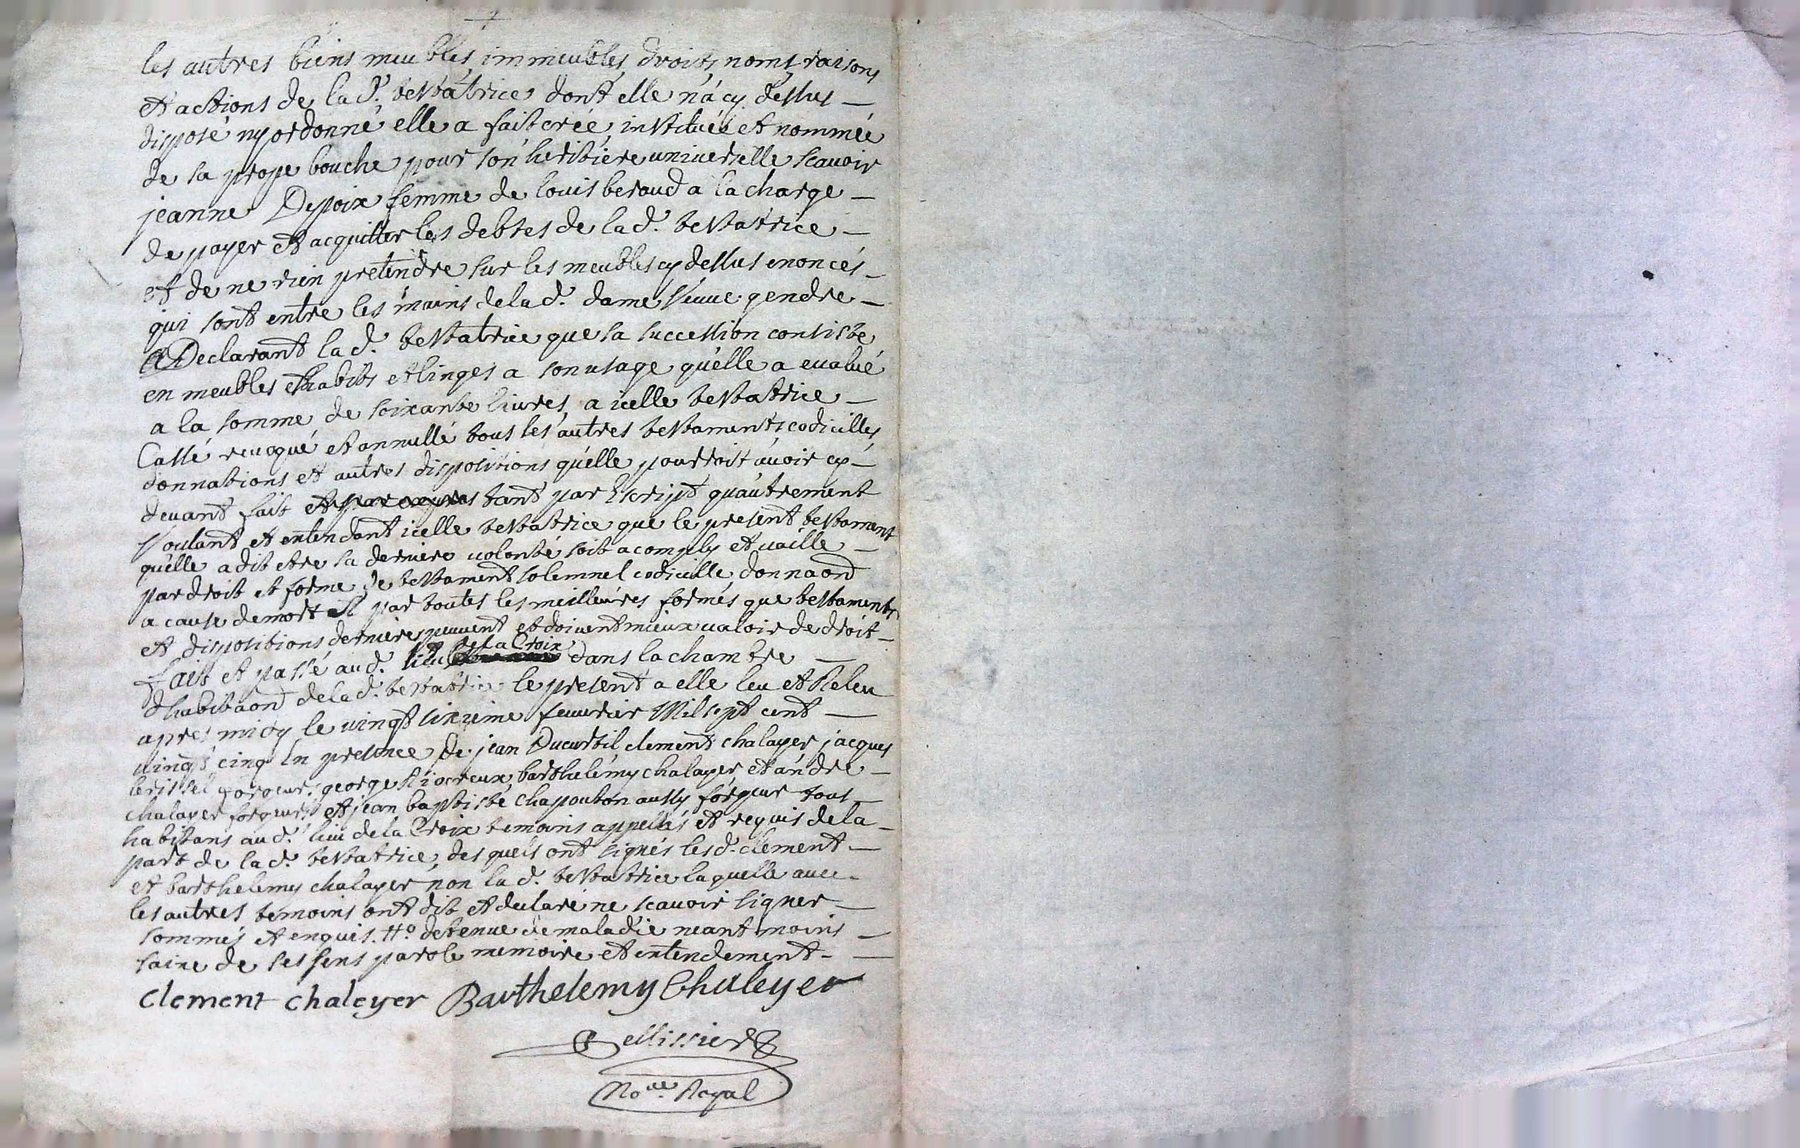 les autres biens meubles immeubles droits noms raisons
et actions de la d.e testatrice dont elle n'a cy dessus
disposé ny ordonné elle a fait creé instituée et nommée
de sa prope bouche pour son heritiere universelle scavoir
jeanne Depoix femme de louis beraud a la charge
de payer et acquitter les debtes de la d.e testatrice
et de ne rien pretendre sur les meubles cy dessus enoncés
qui sont entre les mains de la d.e dame veuve gendre
Declarant la d.e testatrice que sa succession consiste
en meubles habits et linges a son usage qu'elle a evalué
a la somme de soixante livres, a icelle testatrice
Cassé revoqué et annullé tous les autres testaments codicilles
donnations et autres dispositions qu'elle pourroit avoir cy
devant fait tant par Escript qu'autrement
Voulant et entendant icelle testatrice que le present testament
qu'elle a dit etre sa derniere volonté soit acomply et vaille
par droit et forme de testament solemnel codicille donnaon
a cause de mort et par toutes les meilleures formes que testaments
et dispositions derniere peuvent et doivent mieux valoir de droit
fait et passé au d. lieu de la Croix dans la chambre
d'habitaon de la d.e testatrice le present a elle leu et Releu
apres midy le vingt sixieme fevrier Mil sept cent
vingt cinq En presence de jean Ducurtil clement chalayer jacques
forgeurs george Riocreux barthelemy chalayer et andre
chalayer forgeurs et jean baptiste chapouton aussy forgeur tous
habitans au d. lieu de la Croix temoins appellés et requis de la
part de la d.e testatrice, desquels ont signés les d. clement
et barthelemy chalayer non la d.e testatrice laquelle avec
les autres temoins ont dit et declare ne scavoir signer
sommés et enquis. detenue de maladie neant moins
saine de ses sens parole memoire et entendement
clement chaleyer Barthelemy Chaleyer
Pellissier
No.re Royal